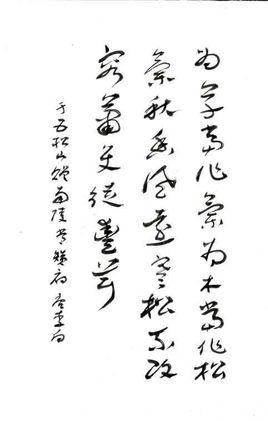 为草当作兰为木当作松
兰秋香风远寒松不改
容萧艾徒豐茸
于五松山赠南陵常赞府 唐李白